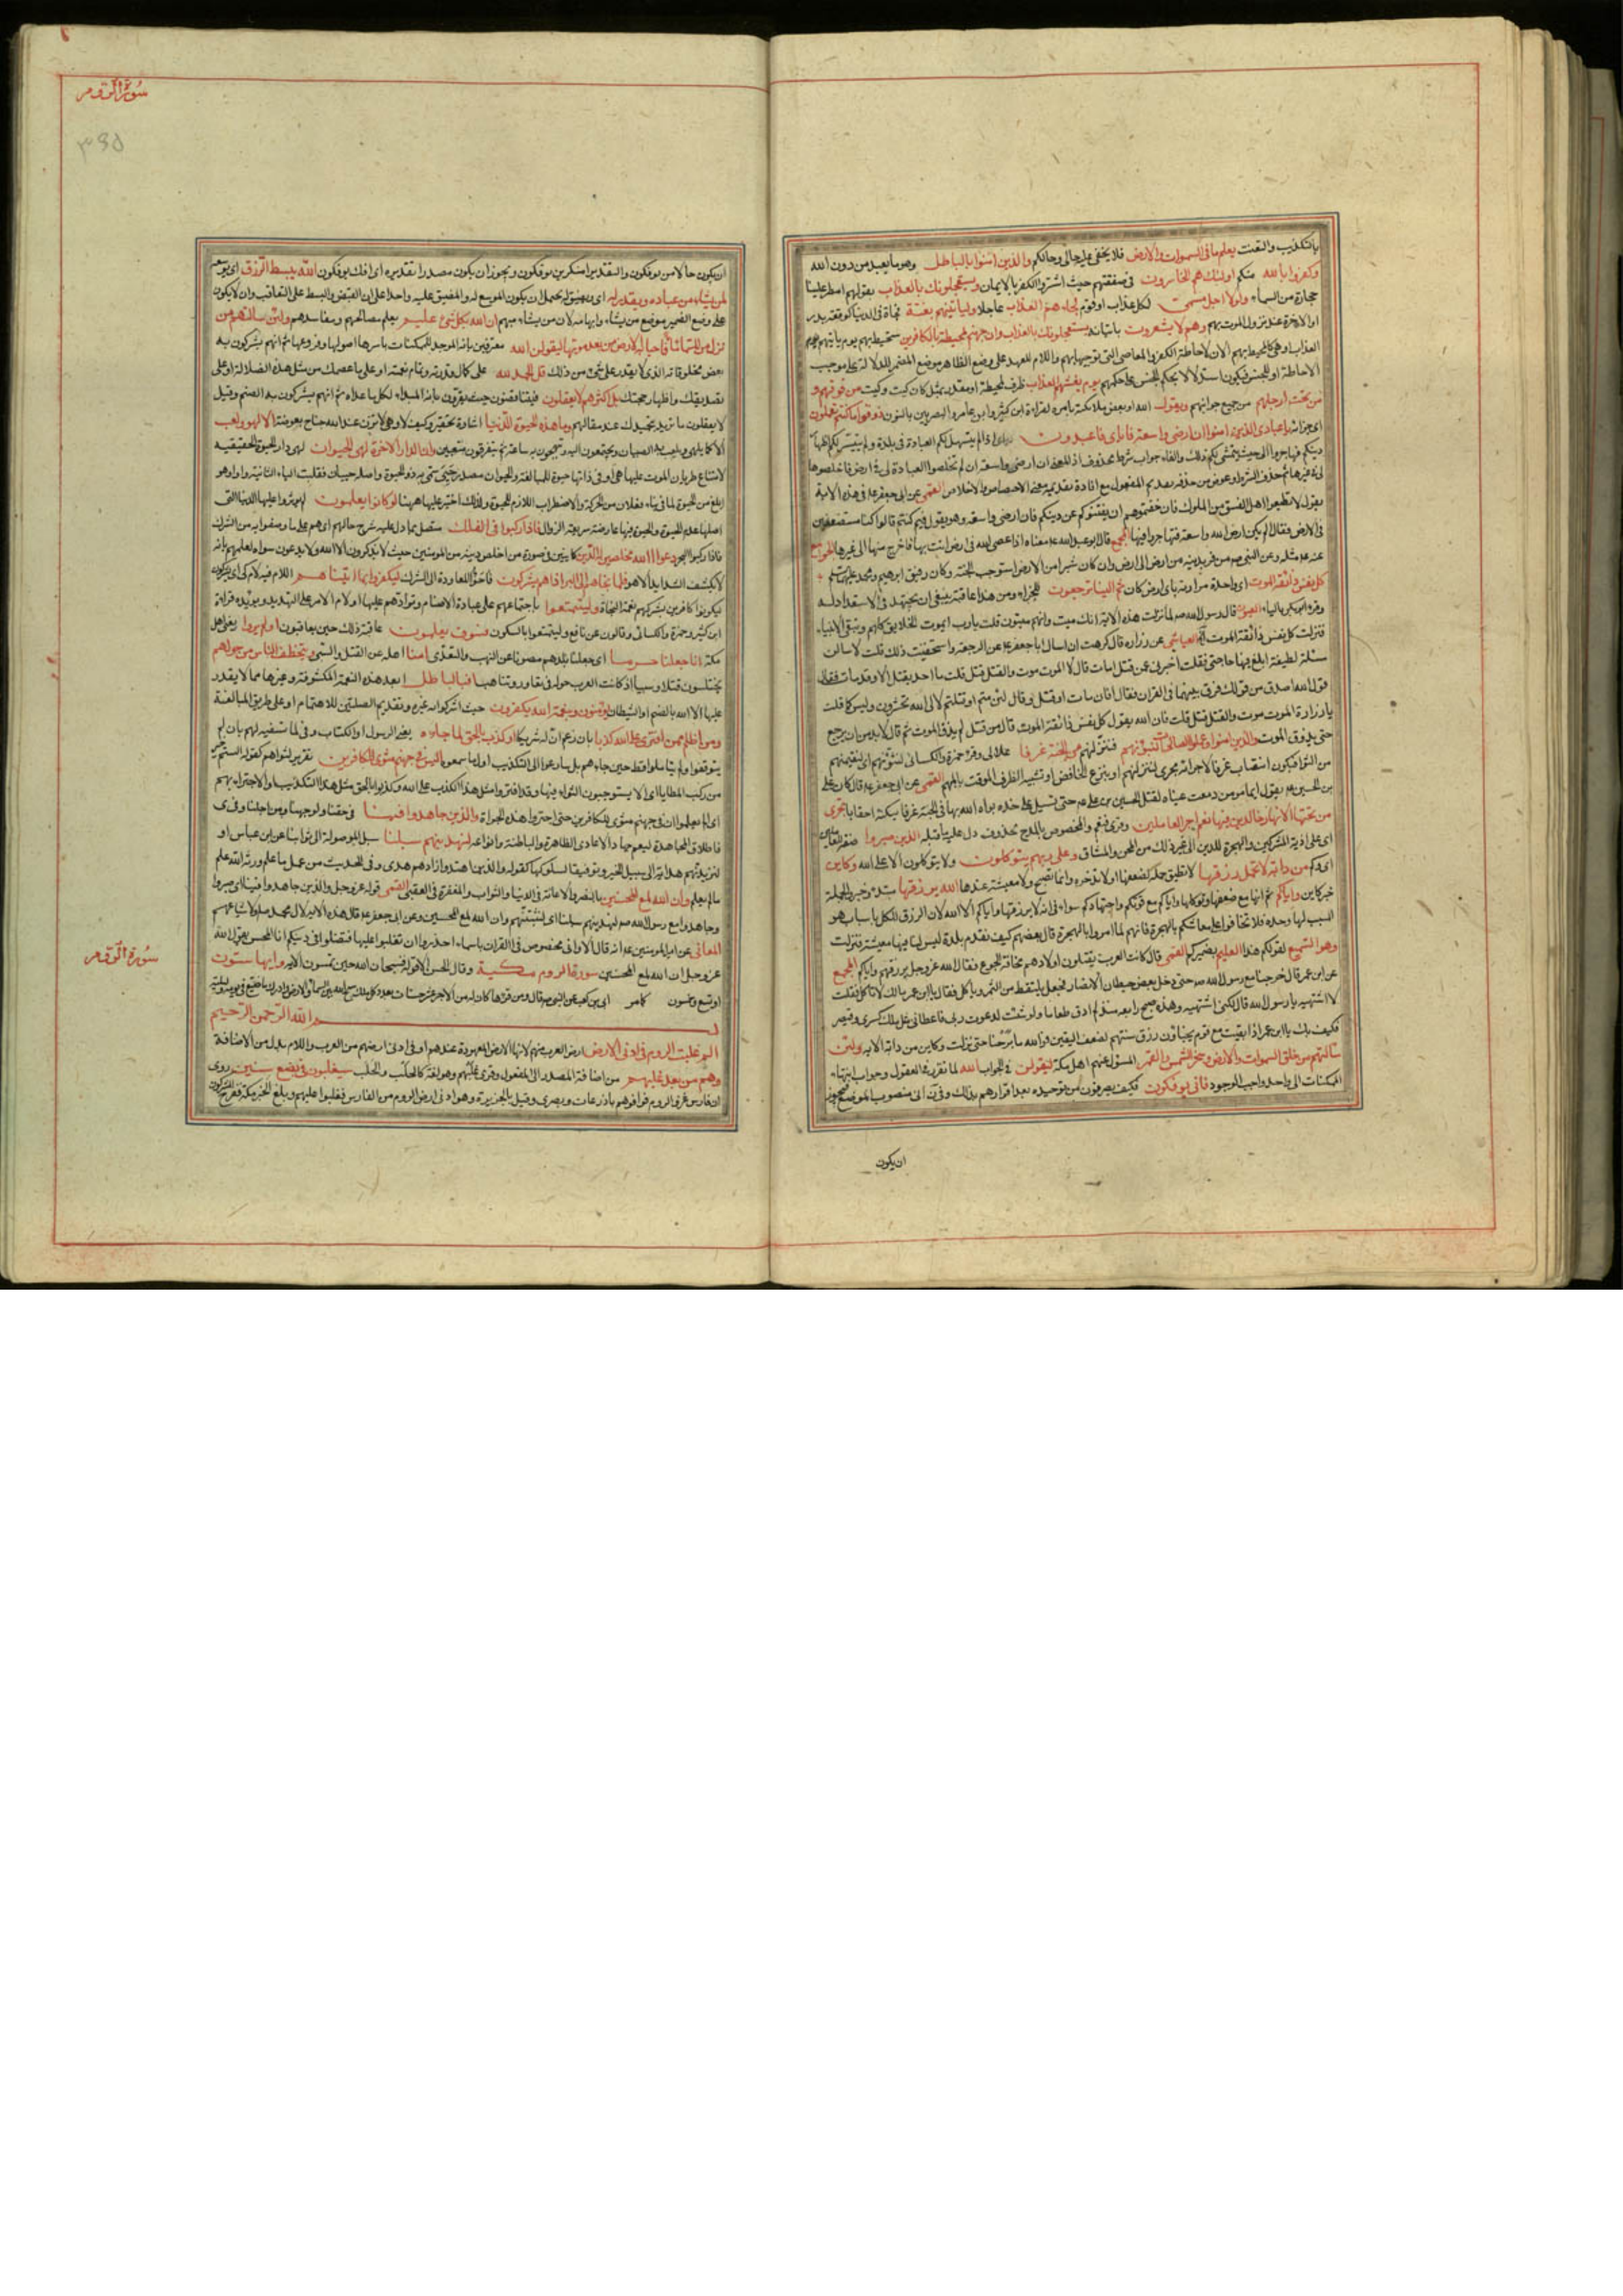 بالتكذيب والتعنت يعلم ما في السموات والارض فلا يخفى عليه حالى وحالكم والذين امنوا بالباطل وهو ما يعبد من دون الله
وكفروا بالله منكم اولئك هم الخاسرون في صفقتهم حيث اشتروا الكفر بالايمان ويستعجلونك بالعذاب بقولهم امطر علينا
حجارة من السماء ولولا اجل مسمى لكل عذاب او قوم لجاءهم العذاب عاجلا وليأتينهم بغتة فجأة في الدنيا كوقعة بدر
او الاخرة عند نزول الموت بهم وهم لا يشعرون باتيانه يستعجلونك بالعذاب وان جهنم لمحيطة بالكافرين ستحيط بهم يوم يأتيهم
العذاب او هي كالمحيطة بهم الان لاحاطة الكفر والمعاصي التي توجبها بهم واللام للعهد على وضع الظاهر موضع المضمر للدلالة على موجب
الاحاطة او للجنس فيكون استدلالا بحكم الجنس على حكمهم يوم يغشيهم العذاب ظرف لمحيطة او مقدر بمثل كان كيت وكيت من فوقهم و
من تحت ارجلهم من جميع جوانبهم ويقول الله او بعض ملائكته بامره لقراءة ابن كثير وابو عامر والبصريين بالنون ذوقوا ما كنتم تعملون
اى جزاءه يا عبادي الذين امنوا ان ارضي واسعة فاياى فاعبدون اى اذا لم يتسهل لكم العبادة في بلدة ولم يتيسر لكم اظهار
دينكم فهاجروا الى حيث يتمشى لكم ذلك والفاء جواب شرط محذوف اذ المعنى ان ارضي واسعة ان لم تخلصوا العبادة لي في ارض فاخلصوها
في غيرها ثم حذف الشرط وعوض عن حذفه تقديم المفعول مع افادة تقديمه معنى الاختصاص والاخلاص القمى عن ابي جعفر ع في هذه الاية
يقول لا تطيعوا اهل الفسق من الملوك فان خفتموهم ان يفتنوكم عن دينكم فان ارضي واسعة وهو يقول فيم كنتم قالوا كنا مستضعفين
في الارض فقال الم تكن ارض الله واسعة فتهاجروا فيها المجمع قال ابو عبد الله ع معناه اذا عصي الله في ارض انت بها فاخرج منها الى غيرها
عنه ع مثله وعن النبي ص من فر بدينه من ارض الى ارض وان كان شبرا من الارض استوجب الجنة وكان رفيق ابرهيم ومحمد
كل نفس ذائقة الموت اى واحدة مرارته باى ارض كان ثم الينا ترجعون للجزاء ومن هذا عاقبته ينبغي ان يجتهد في الاستعداد له
وقرء ابو بكر بالياء العيون قال رسول الله ص لما نزلت هذه الاية انك ميت وانهم ميتون قلت يا رب ايموت الخلايق كلهم وتبقى الانبياء
فنزلت كل نفس ذائقة الموت العياشي عن زراره قال كرهت ان اسال ابا جعفر ع عن الرجعة واستخفيت ذلك قلت لاسالن
مسئلة لطيفة ابلغ فيها حاجتي فقلت اخبرني عمن قتل امات قال لا الموت موت والقتل قتل قلت ما احد يقتل الا وقد مات فقال
قول الله اصدق من قولك فرق بينهما في القران فقال افان مات او قتل وقال لئن متم او قتلتم لالى الله تحشرون وليس كما قلت
يا زرارة الموت موت والقتل قتل قلت فان الله يقول كل نفس ذائقة الموت قال من قتل لم يذق الموت ثم قال لا بد من ان يرجع
حتى يذوق الموت والذين امنوا وعملوا الصالحات لنبوئنهم لننزلنهم من الجنة غرفا علالى وقرء حمزة والكسائى لنثوينهم اى لنقيمنهم
من الثواء فيكون انتصاب غرفا لاجرائه مجرى لننزلنهم او بنزع الخافض او تشبيه الظرف الموقت بالمبهم القمى عن ابي جعفر ع قال كان على
بن الحسين ع يقول ايما مومن دمعت عيناه لقتل الحسين بن على ع حتى تسيل على خده بواه الله بها في الجنة غرفا يسكنها احقابا تجرى
من تحتها الانهار خالدين فيها نعم اجر العاملين وقرئ فنعم والمخصوص بالمدح محذوف دل عليه ما قبله الذين صبروا
اى على اذية المشركين والهجرة للدين الى غير ذلك من المحن والمشاق وعلى ربهم يتوكلون ولا يتوكلون الا على الله وكاين
من دابة لا تحمل رزقها لا تطيق حمله لضعفها او لا تدخره وانما تصبح ولا معيشة عندها الله يرزقها
واياكم ثم انها مع ضعفها وتوكلها واياكم مع قوتكم واجتهادكم سواء في انه لا يرزقها واياكم الا الله لان الرزق الكل باسباب هو
المسبب لها وحده فلا تخافوا على معاشكم بالهجرة فانهم لما امروا بالهجرة قال بعضهم كيف نقدم بلدة ليس لنا فيها معيشة فنزلت
وهو السميع لقولكم هذا العليم بضميركم القمى قال كانت العرب يقتلون اولادهم مخافة الجوع فقال الله عز وجل الله يرزقهم واياكم المجمع
عن ابن عمر قال خرجنا مع رسول الله ص حتى دخل بعض حيطان الانصار فجعل يلتقط من التمر وياكل فقال يا ابن عمر ما لك لا تاكل فقلت
لا اشتهيه يا رسول الله قال لكنى اشتهيه وهذه صبح رابعة منذ لم اذق طعاما ولو شئت لدعوت ربي فاعطاني مثل ملك كسرى وقيصر
فكيف بك يا ابن عمر اذا بقيت مع قوم يخبأون رزق سنتهم لضعف اليقين فوالله ما برحنا حتى نزلت وكاين من دابة الاية ولئن
سالتهم من خلق السموات والارض وسخر الشمس والقمر المسئول عنهم اهل مكة ليقولن في الجواب الله لما تقرر في العقول وجوب انتهاء
الممكنات الى واحد واجب الوجود فانى يؤفكون فكيف يصرفون عن توحيده بعد اقرارهم بذلك
ان يكون
سورة الروم
۳۹۵
ان يكون حالا من يوفكون والتقدير امنكرين يوفكون ويجوز ان يكون مصدرا تقديره اى افك يوفكون الله يبسط الرزق
لمن يشاء من عباده ويقدر له اى ويضيق له يحتمل ان يكون الموسع له والمضيق عليه واحدا على ان القبض والبسط على التعاقب وان لا يكون
على وضع الضمير موضع من يشاء وابهامه لان من يشاء مبهم ان الله بكل شئ عليم يعلم مصالحهم ومفاسدهم ولئن سالتهم من
نزل من السماء ماء فاحيا به الارض من بعد موتها ليقولن الله معترفين بانه الموجد للممكنات باسرها اصولها وفروعها ثم انهم يشركون به
بعض مخلوقاته الذي لا يقدر على شئ من ذلك قل الحمد لله على كمال قدرته وتمام نعمته او على ما عصمك من مثل هذه الضلالة او على
تصديقك واظهار حجتك بل اكثرهم لا يعقلون فيتناقضون حيث يقرون بانه المبدء لكل ما عداه ثم انهم يشركون به الصنم وقيل
لا يعقلون ما تريد بتحميدك عند مقالهم وما هذه الحيوة الدنيا اشارة تحقير وكيف لا وهي لا تزن عند الله جناح بعوضة الا لهو ولعب
الا كما يلهى ويلعب به الصبيان ويجتمعون اليه ويبتهجون به ساعة ثم يتفرقون متعبين وان الدار الاخرة لهي الحيوان لهي دار الحيوة الحقيقية
لامتناع طريان الموت عليها او هي في ذاتها حيوة للمبالغة والحيوان مصدر حيى سمى به ذو الحيوة واصله حييان فقلبت الياء الثانية واوا وهو
ابلغ من الحيوة لما في بناء فعلان من الحركة والاضطراب اللازم للحيوة ولذلك اختير عليها ههنا لو كانوا يعلمون لم يؤثروا عليها الدنيا التي
اصلها عدم الحيوة والحيوة فيها عارضة سريعة الزوال فاذا ركبوا في الفلك متصل بما دل عليه شرح حالهم اى هم على ما وصفوا به من الشرك
فاذا ركبوا البحر دعوا الله مخلصين له الدين كاينين في صورة من اخلص دينه من المومنين حيث لا يذكرون الا الله ولا يدعون سواه لعلمهم بانه
لا يكشف الشدايد الا هو فلما نجاهم الى البر اذا هم يشركون فاجؤا المعاودة الى الشرك ليكفروا بما اتيناهم اللام فيه لام كى اى يشركون
ليكونوا كافرين بشركهم نعمة النجاة وليتمتعوا باجتماعهم على عبادة الاصنام وتوادهم عليها او لام الامر على التهديد ويؤيده قراءة
ابن كثير وحمزة والكسائى وقالون عن نافع وليتمتعوا بالسكون فسوف يعلمون عاقبة ذلك حين يعاقبون اولم يروا يعني اهل
مكة انا جعلنا حرما امنا اى جعلنا بلدهم مصونا عن النهب والتعدى امنا اهله عن القتل والسبى ويتخطف الناس من حولهم
يختلسون قتلا وسبيا اذ كانت العرب حوله في تغاور وتناهب افبالباطل ابعد هذه النعمة المكشوفة وغيرها مما لا يقدر
عليها الا الله بالصنم او الشيطان يؤمنون وبنعمة الله يكفرون حيث اشركوا به غيره وتقديم الصلتين للاهتمام او على طريق المبالغة
ومن اظلم ممن افترى على الله كذبا بان زعم ان له شريكا او كذب بالحق لما جاءه يعني الرسول او الكتاب وفي لما تسفيه لهم بان لم
يتوقفوا ولم يتأملوا قط حين جاءهم بل سارعوا الى التكذيب اول ما سمعوه اليس في جهنم مثوى للكافرين تقرير لثوائهم كقوله الستم خير
من ركب المطايا اى الا يستوجبون الثواء فيها وقد افتروا مثل هذا الكذب على الله وكذبوا بالحق مثل هذا التكذيب او لاجترائهم
اى الم يعلموا ان في جهنم مثوى للكافرين حتى اجترؤا هذه الجراة والذين جاهدوا فينا في حقنا ولوجهنا ومن اجلنا
فاطلاق المجاهدة ليعم جهاد الاعادى الظاهرة والباطنة وانواعه لنهدينهم سبلنا سبل الموصولة الى ثوابنا عن ابن عباس او
لنزيدنهم هداية الى سبيل الخير وتوفيقا لسلوكها كقوله والذين اهتدوا زادهم هدى وفي الحديث من عمل بما علم ورثه الله علم
ما لم يعلم وان الله لمع المحسنين بالنصر والاعانة في الدنيا والثواب والمغفرة في العقبى القمى قوله عز وجل والذين جاهدوا فينا اى صبروا
وجاهدوا مع رسول الله ص لنهدينهم سبلنا اى لنثبتنهم وان الله لمع المحسنين وعن ابي جعفر ع قال هذه الاية لال محمد ص ولاشياعهم
المعاني عن امير المومنين ع انه قال الا واني مخصوص في القران باسماء احذروا ان تغلبوا عليها فتضلوا في دينكم انا المحسن يقول الله
عز وجل ان الله لمع المحسنين سورة الروم مكية وقال الحسن الا قوله فسبحان الله حين تمسون الاية وايها ستون
او تسع وخمسون كامر ابي بن كعب عن النبي ص قال ومن قرأها كان له من الاجر عشر حسنات بعدد كل ملك سبح الله بين السماء والارض وادرك ما ضيع في يومه وليلته
بسم الله الرحمن الرحيم
الم غلبت الروم في ادنى الارض ارض العرب منهم لانها الارض المعهودة عندهم او في ادنى ارضهم من العرب واللام بدل من الاضافة
وهم من بعد غلبهم من اضافة المصدر الى المفعول وقرئ غلبهم وهو لغة كالجلب والحلب سيغلبون في بضع سنين روى
ان فارس غزوا الروم فوافوهم باذرعات وبصرى وقيل بالجزيرة وهو ادنى ارض الروم من الفارس فغلبوا عليهم وبلغ الخبر مكة ففرح المشركون
سورة الروم